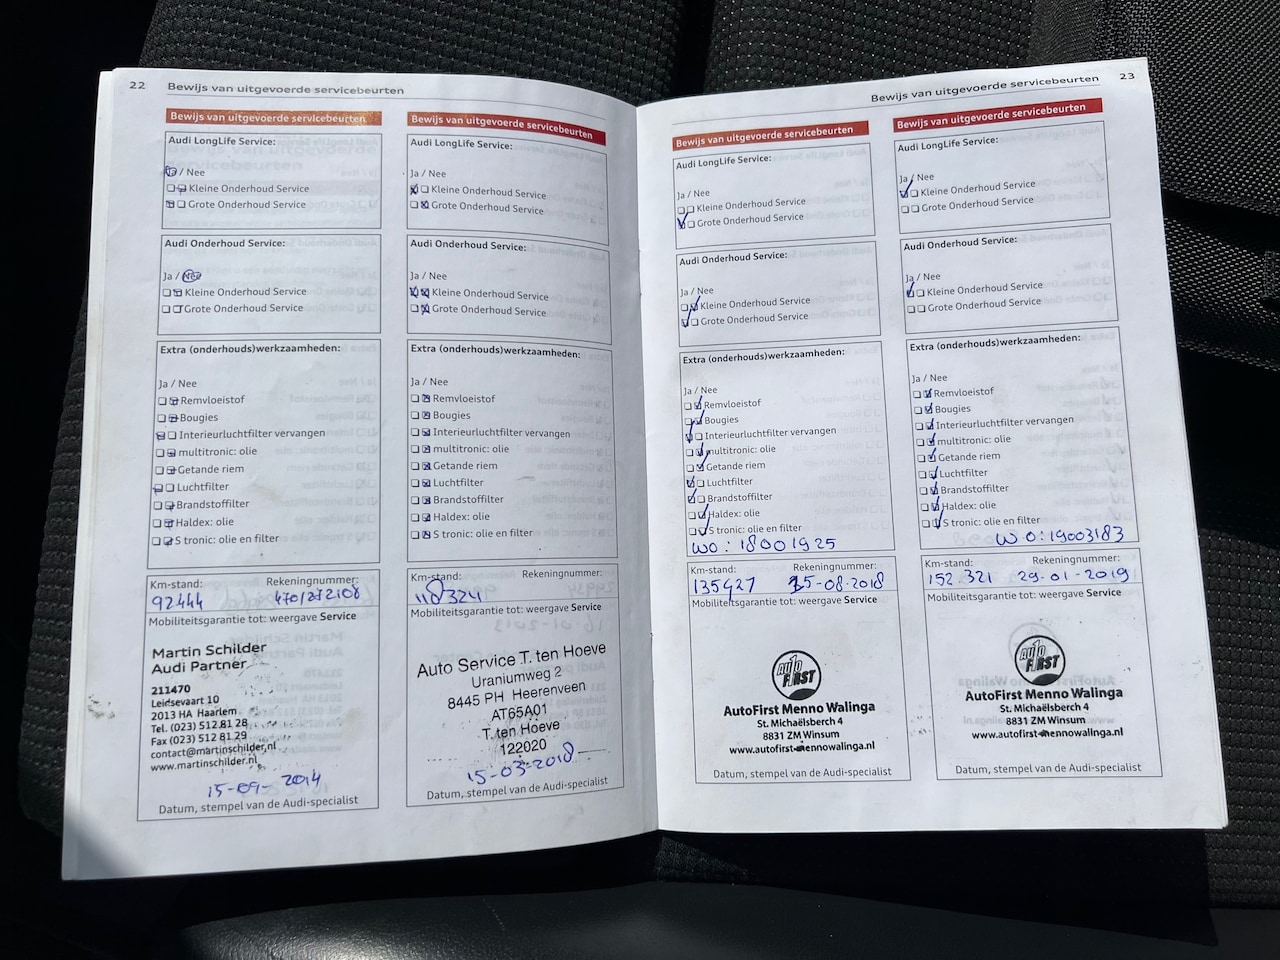 22 Bewijs van uitgevoerde servicebeurten
Bewijs van uitgevoerde servicebeurten
Audi LongLife Service:
Ja / Nee
Kleine Onderhoud Service
Grote Onderhoud Service
Audi Onderhoud Service:
Ja / Nee
Kleine Onderhoud Service
Grote Onderhoud Service
Extra (onderhouds)werkzaamheden:
Ja / Nee
Remvloeistof
Bougies
Interieurluchtfilter vervangen
multitronic: olie
Getande riem
Luchtfilter
Brandstoffilter
Haldex: olie
S tronic: olie en filter
Km-stand: Rekeningnummer:
92444 470/272108
Mobiliteitsgarantie tot: weergave Service
Martin Schilder
Audi Partner
211470
Leidsevaart 10
2013 HA Haarlem
Tel. (023) 512 81 28
Fax (023) 512 81 29
contact@martinschilder.nl
www.martinschilder.nl
15-09-2014
Datum, stempel van de Audi-specialist
Bewijs van uitgevoerde servicebeurten
Audi LongLife Service:
Ja / Nee
Kleine Onderhoud Service
Grote Onderhoud Service
Audi Onderhoud Service:
Ja / Nee
Kleine Onderhoud Service
Grote Onderhoud Service
Extra (onderhouds)werkzaamheden:
Ja / Nee
Remvloeistof
Bougies
Interieurluchtfilter vervangen
multitronic: olie
Getande riem
Luchtfilter
Brandstoffilter
Haldex: olie
S tronic: olie en filter
Km-stand: Rekeningnummer:
118324
Mobiliteitsgarantie tot: weergave Service
Auto Service T. ten Hoeve
Uraniumweg 2
8445 PH Heerenveen
AT65A01
T. ten Hoeve
122020
15-03-2018
Datum, stempel van de Audi-specialist
Bewijs van uitgevoerde servicebeurten 23
Bewijs van uitgevoerde servicebeurten
Audi LongLife Service:
Ja / Nee
Kleine Onderhoud Service
Grote Onderhoud Service
Audi Onderhoud Service:
Ja / Nee
Kleine Onderhoud Service
Grote Onderhoud Service
Extra (onderhouds)werkzaamheden:
Ja / Nee
Remvloeistof
Bougies
Interieurluchtfilter vervangen
multitronic: olie
Getande riem
Luchtfilter
Brandstoffilter
Haldex: olie
S tronic: olie en filter
WO: 18001925
Km-stand: Rekeningnummer:
135427 15-08-2018
Mobiliteitsgarantie tot: weergave Service
Auto
FIRST
AutoFirst Menno Walinga
St. Michaëlsberch 4
8831 ZM Winsum
www.autofirst-mennowalinga.nl
Datum, stempel van de Audi-specialist
Bewijs van uitgevoerde servicebeurten
Audi LongLife Service:
Ja / Nee
Kleine Onderhoud Service
Grote Onderhoud Service
Audi Onderhoud Service:
Ja / Nee
Kleine Onderhoud Service
Grote Onderhoud Service
Extra (onderhouds)werkzaamheden:
Ja / Nee
Remvloeistof
Bougies
Interieurluchtfilter vervangen
multitronic: olie
Getande riem
Luchtfilter
Brandstoffilter
Haldex: olie
S tronic: olie en filter
WO: 19003183
Km-stand: Rekeningnummer:
152.321 29-01-2019
Mobiliteitsgarantie tot: weergave Service
Auto
FIRST
AutoFirst Menno Walinga
St. Michaëlsberch 4
8831 ZM Winsum
www.autofirst-mennowalinga.nl
Datum, stempel van de Audi-specialist